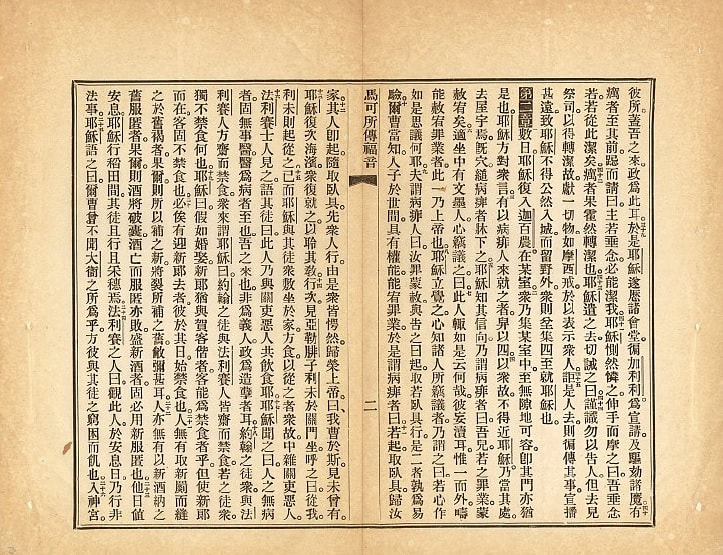 彼所蓋吾之來政爲此耳於是耶穌遂歷諸會堂徧加利利爲宣講及驅劾諸魔有
癘者至其前跽而請曰主若垂念必能潔我耶穌惻然憐之伸手而摩之曰吾垂念
若若從此潔矣癘者果霍然轉潔也耶穌遣之去切誡之曰謹識勿以告人但去見
祭司以得轉潔故獻一切物如摩西戒於以表示衆人詎是人去則徧傳其事宣播
甚遠致耶穌不得公然入城而留野外衆則坌集四至就耶穌也
第二章數日耶穌復入迦百農在某室衆乃集某室中至無隙地可容卽其門亦猶
是也耶穌方對衆言有以病痱人來就之者舁以四以衆故不得近耶穌乃當其處
去屋宇焉旣穴縋病痱者牀下之耶穌知其信向乃謂病痱者曰吾兒若之罪業蒙
赦宥矣適坐中有文墨人心竊議之曰此人輒如是云何哉彼妄瀆耳惟一而外疇
能赦宥罪業者此一乃上帝也耶穌立覺之心知諸人所竊議者乃謂之曰若心作
如是思議何耶夫謂病痱人曰汝罪蒙赦與告之曰起取若臥具行是二者孰爲易
驗爾曹當知人子於世間具有權能能宥罪業於是謂病痱者曰若起取臥具歸汝
馬可所傳福音 二
家其人卽起隨取臥具先衆人行由是衆皆愕然歸榮上帝曰我曹於斯見未曾有
耶穌復次海濱衆復就之以聆其敎行次見亞勒腓子利未於關門坐呼之曰從我
利未則起從之已而耶穌與其徒衆敷坐於家方食以從之者衆故中雜關吏惡人
法利賽士人見之語其徒曰此人乃與關吏惡人共飮食耶耶穌聞之曰人之無病
者固無事醫醫爲病者至也吾之來也非爲義人政爲造孽者耳約翰之徒衆與法
利賽人方齋而禁食衆來謂耶穌曰約翰之徒與法利賽人皆齋而禁食若之徒衆
獨不禁食何也耶穌曰假如婚娶新耶猶與賀客偕者客能爲禁食者乎但使新耶
而在客固不禁食也必俟有迎新耶去者彼於其日始禁食也人無有取新罽而縫
之於舊褐者果爾則所以補之新將裂所補之舊敝彌甚耳人亦無有以新酒納之
舊服匿者果爾則酒將破囊酒亡而服匿亦敗盛新酒者固必用新服匿也他日值
安息耶穌行稻田間其徒且行且采穗焉法利賽之人曰觀此人於安息日乃行非
法事耶穌語之曰爾曹曾不聞大衞之所爲乎方彼與其徒之窮困而飢也入神宮